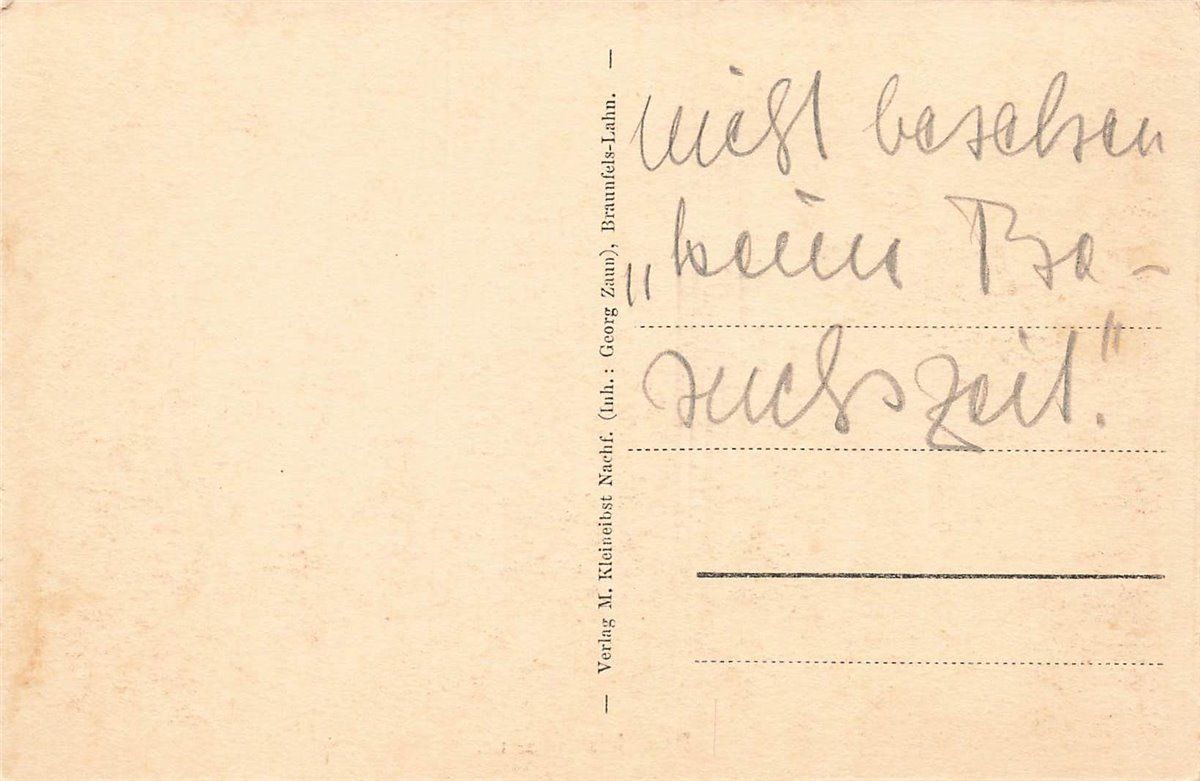 — Verlag M. Kleineibst Nachf. (Inh.: Georg Zaun), Braunfels-Lahn. —
nicht besehen
„keine Be-
suchszeit."